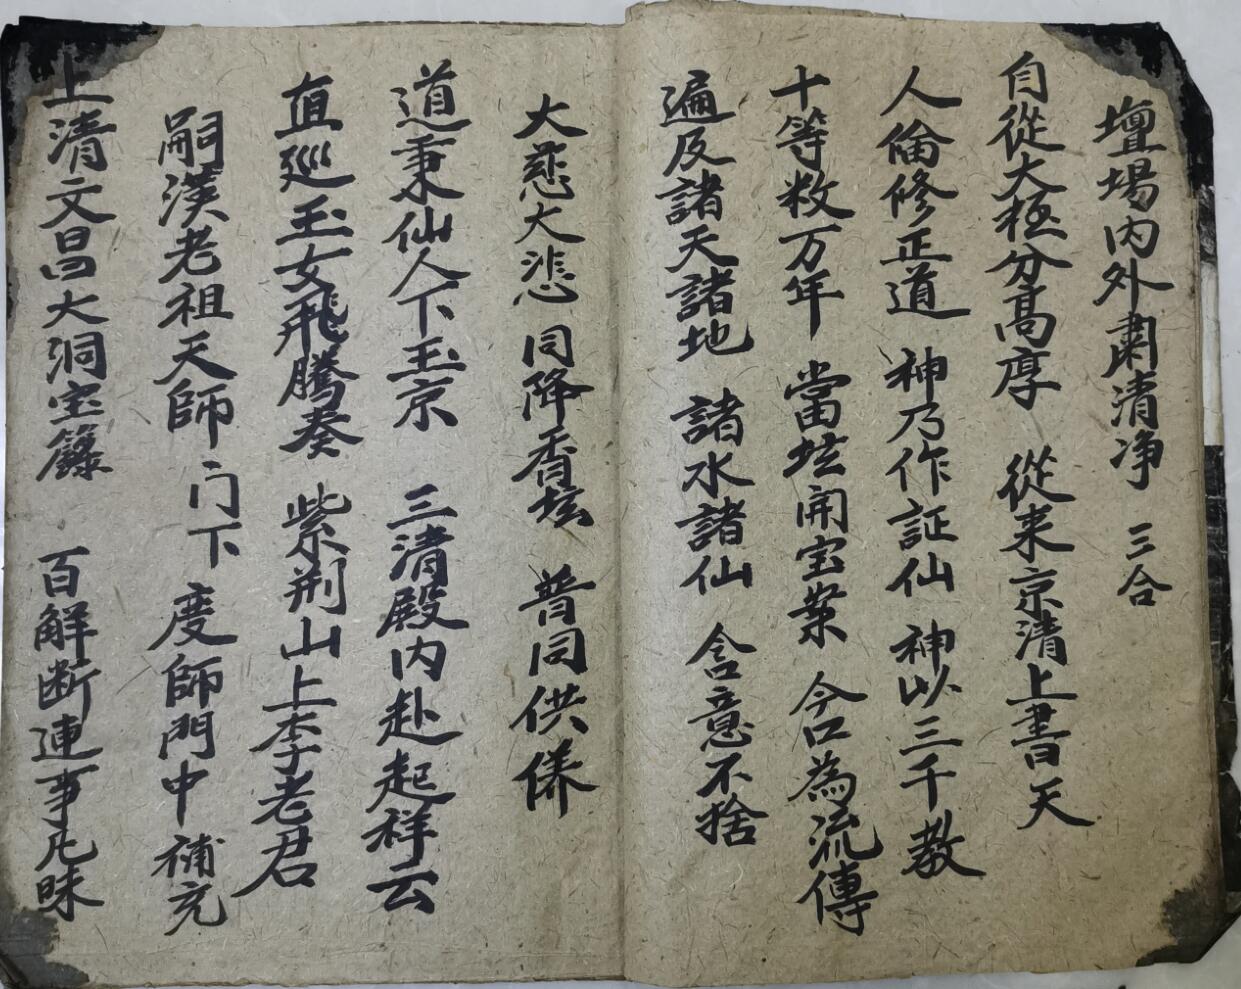 壇場内外肅清净 三合
自從大極分高厚 從来京清上書天
人倫修正道 神乃作証仙 神以三千教
十等数万年 當坛開宝案 今口為流傳
遍及諸天諸地 諸水諸仙 含意不捨
大慈大悲 同降香坛 普同供偹
道秉仙人下玉京 三清殿内赴起祥云
直巡玉女飛騰奏 紫荆山上李老君
嗣漢老祖天師门下 度師門中補充
上清文昌大洞宝籙 百解断連事凡昧